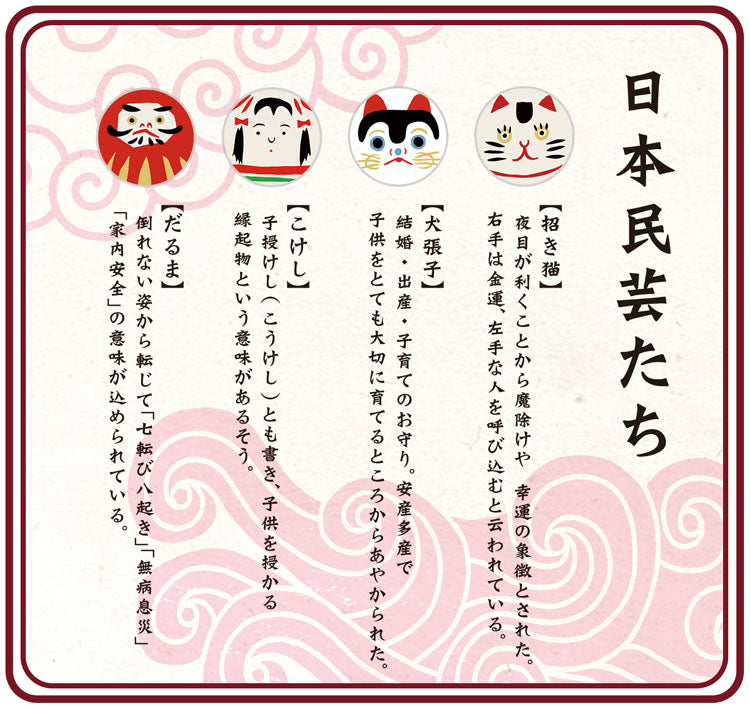 日本民芸たち
【招き猫】
夜目が利くことから魔除けや　幸運の象徴とされた。
右手は金運、左手な人を呼び込むと云われている。
【犬張子】
結婚・出産・子育てのお守り。安産多産で
子供をとても大切に育てるところからあやかられた。
【こけし】
子授けし(こうけし)とも書き、子供を授かる
縁起物という意味があるそう。
【だるま】
倒れない姿から転じて「七転び八起き」「無病息災」
「家内安全」の意味が込められている。